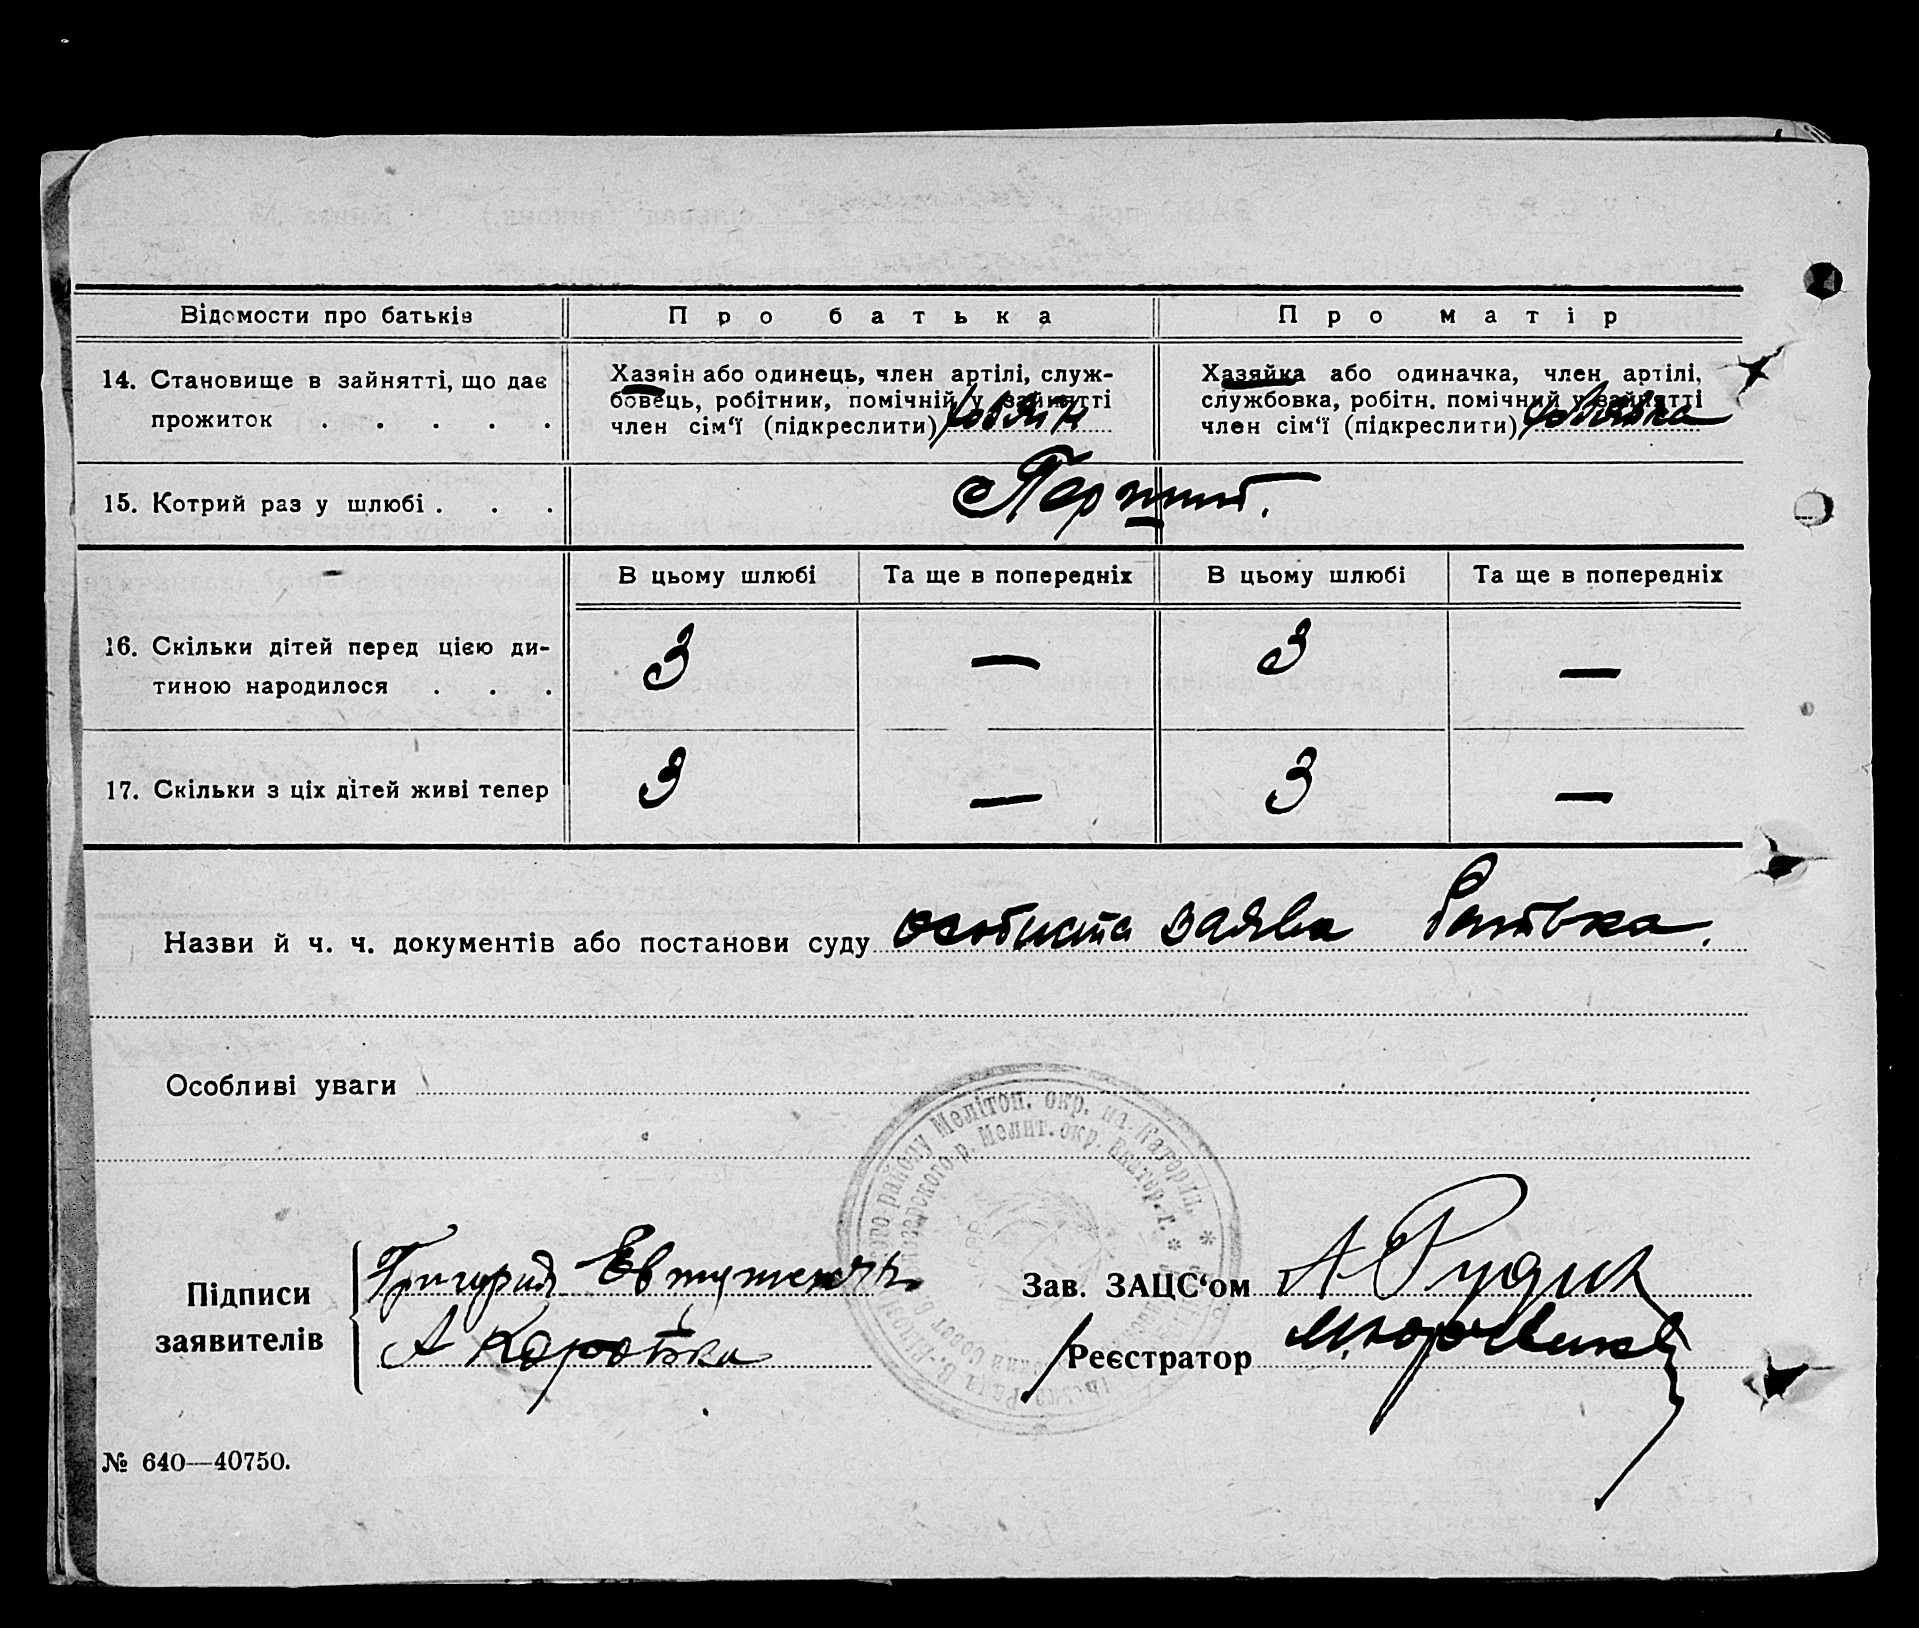 Відомости про батьків Про батька Про матір
14. Становище в зайнятті, що дає прожиток . . . . .
Хазяін або одинець, член артілі, служ-
бовець, робітник, помічній у зайнятті
член сім‘ї (підкреслити) хазяін
Хазяйка або одиначка, член артілі,
службовка, робітн. помічний у зайнятті
член сім‘ї (підкреслити) хазяйка
15. Котрий раз у шлюбі . . . Перший.
В цьому шлюбі Та ще в попередніх В цьому шлюбі Та ще в попередніх
16. Скільки дітей перед цією ди-
тиною народилося . . . 3 — 3 —
17. Скільки з ціх дітей живі тепер 3 — 3 —
Назви й ч. ч. документів або постанови суду особиста заява батька.
Особливі уваги
району Меліtоп. окр. на Катерин. *
р. Мелит. окр. Екатер. г. *
Підписи
заявителів
Григорий Евтушенко
А Коротка
Зав. ЗАЦС‘ом А Рудик
Реєстратор
№ 640—40750.